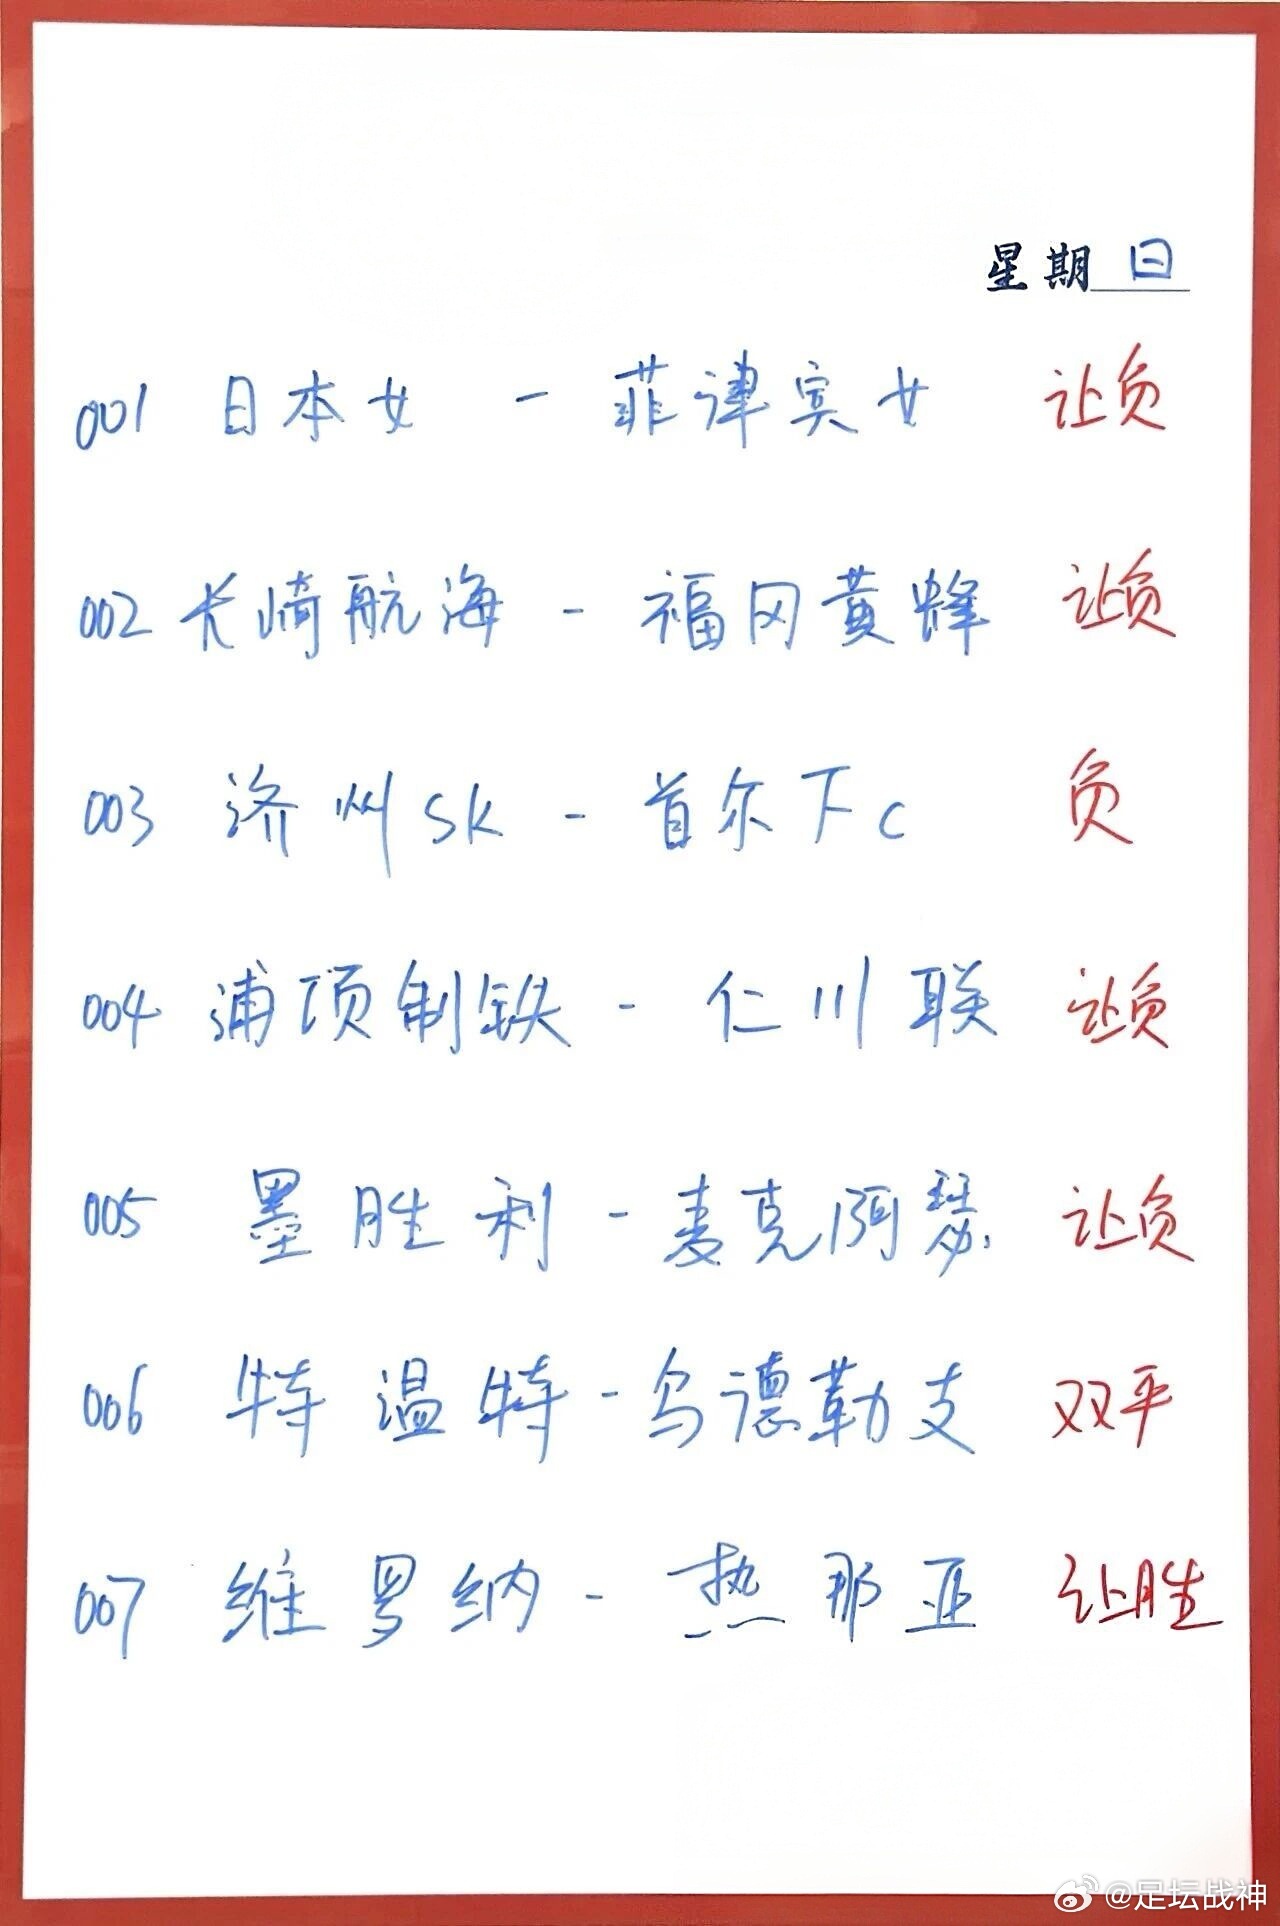 星期日
001 日本女 - 菲律宾女 让负
002 长崎航海 - 福冈黄蜂 让负
003 济州SK - 首尔FC 负
004 浦项制铁 - 仁川联 让负
005 墨胜利 - 麦克阿瑟 让负
006 特温特 - 乌德勒支 双平
007 维罗纳 - 热那亚 让胜
@足坛战神